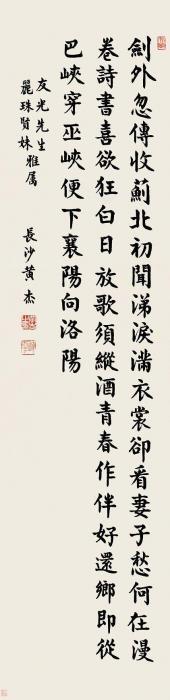 劍外忽傳收薊北初聞涕淚滿衣裳卻看妻子愁何在漫
卷詩書喜欲狂白日放歌須縱酒青春作伴好還鄉即從
巴峽穿巫峽便下襄陽向洛陽
友光先生
麗珠賢妹雅屬
長沙黃杰